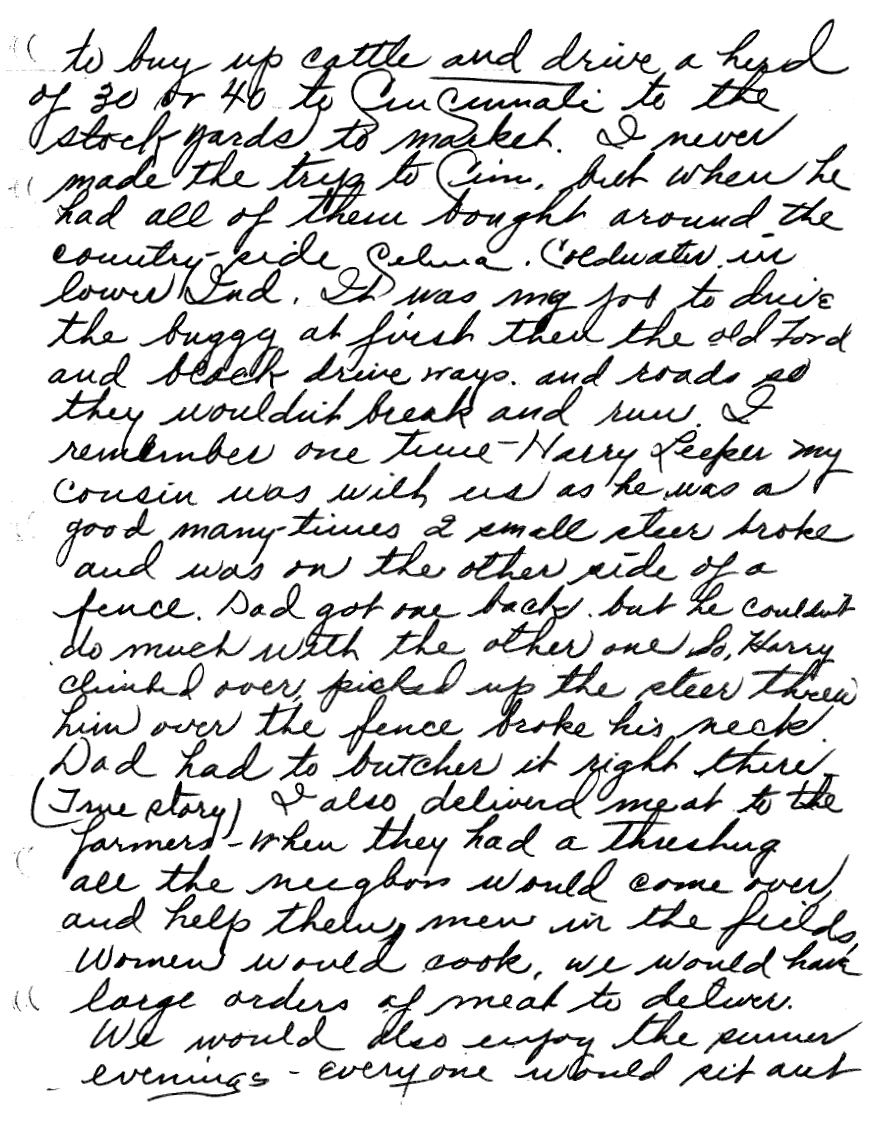 to buy up cattle and drive a herd
of 30 or 40 to Cincinnati to the
stock yards to market. I never
made the trip to Cinn, but when he
had all of them bought around the
country-side Celina. Coldwater. in
lower Ind. It was my job to drive
the buggy at first then the old Ford
and block drive ways. and roads so
they wouldn't break and run. I
remember one time - Harry Leeper my
cousin was with us as he was a
good many-times 2 small steer broke
and was on the other side of a
fence. Dad got one back. but he couldn't
do much with the other one So, Harry
climbed over, picked up the steer threw
him over the fence broke his neck.
Dad had to butcher it right there.
(True story) I also deliverd meat to the
farmers - when they had a threshing
all the neigbors would come over,
and help them, men in the fields,
Women would cook, we would have
large orders of meat to deliver.
We would also enjoy the summer
evenings - everyone would sit out